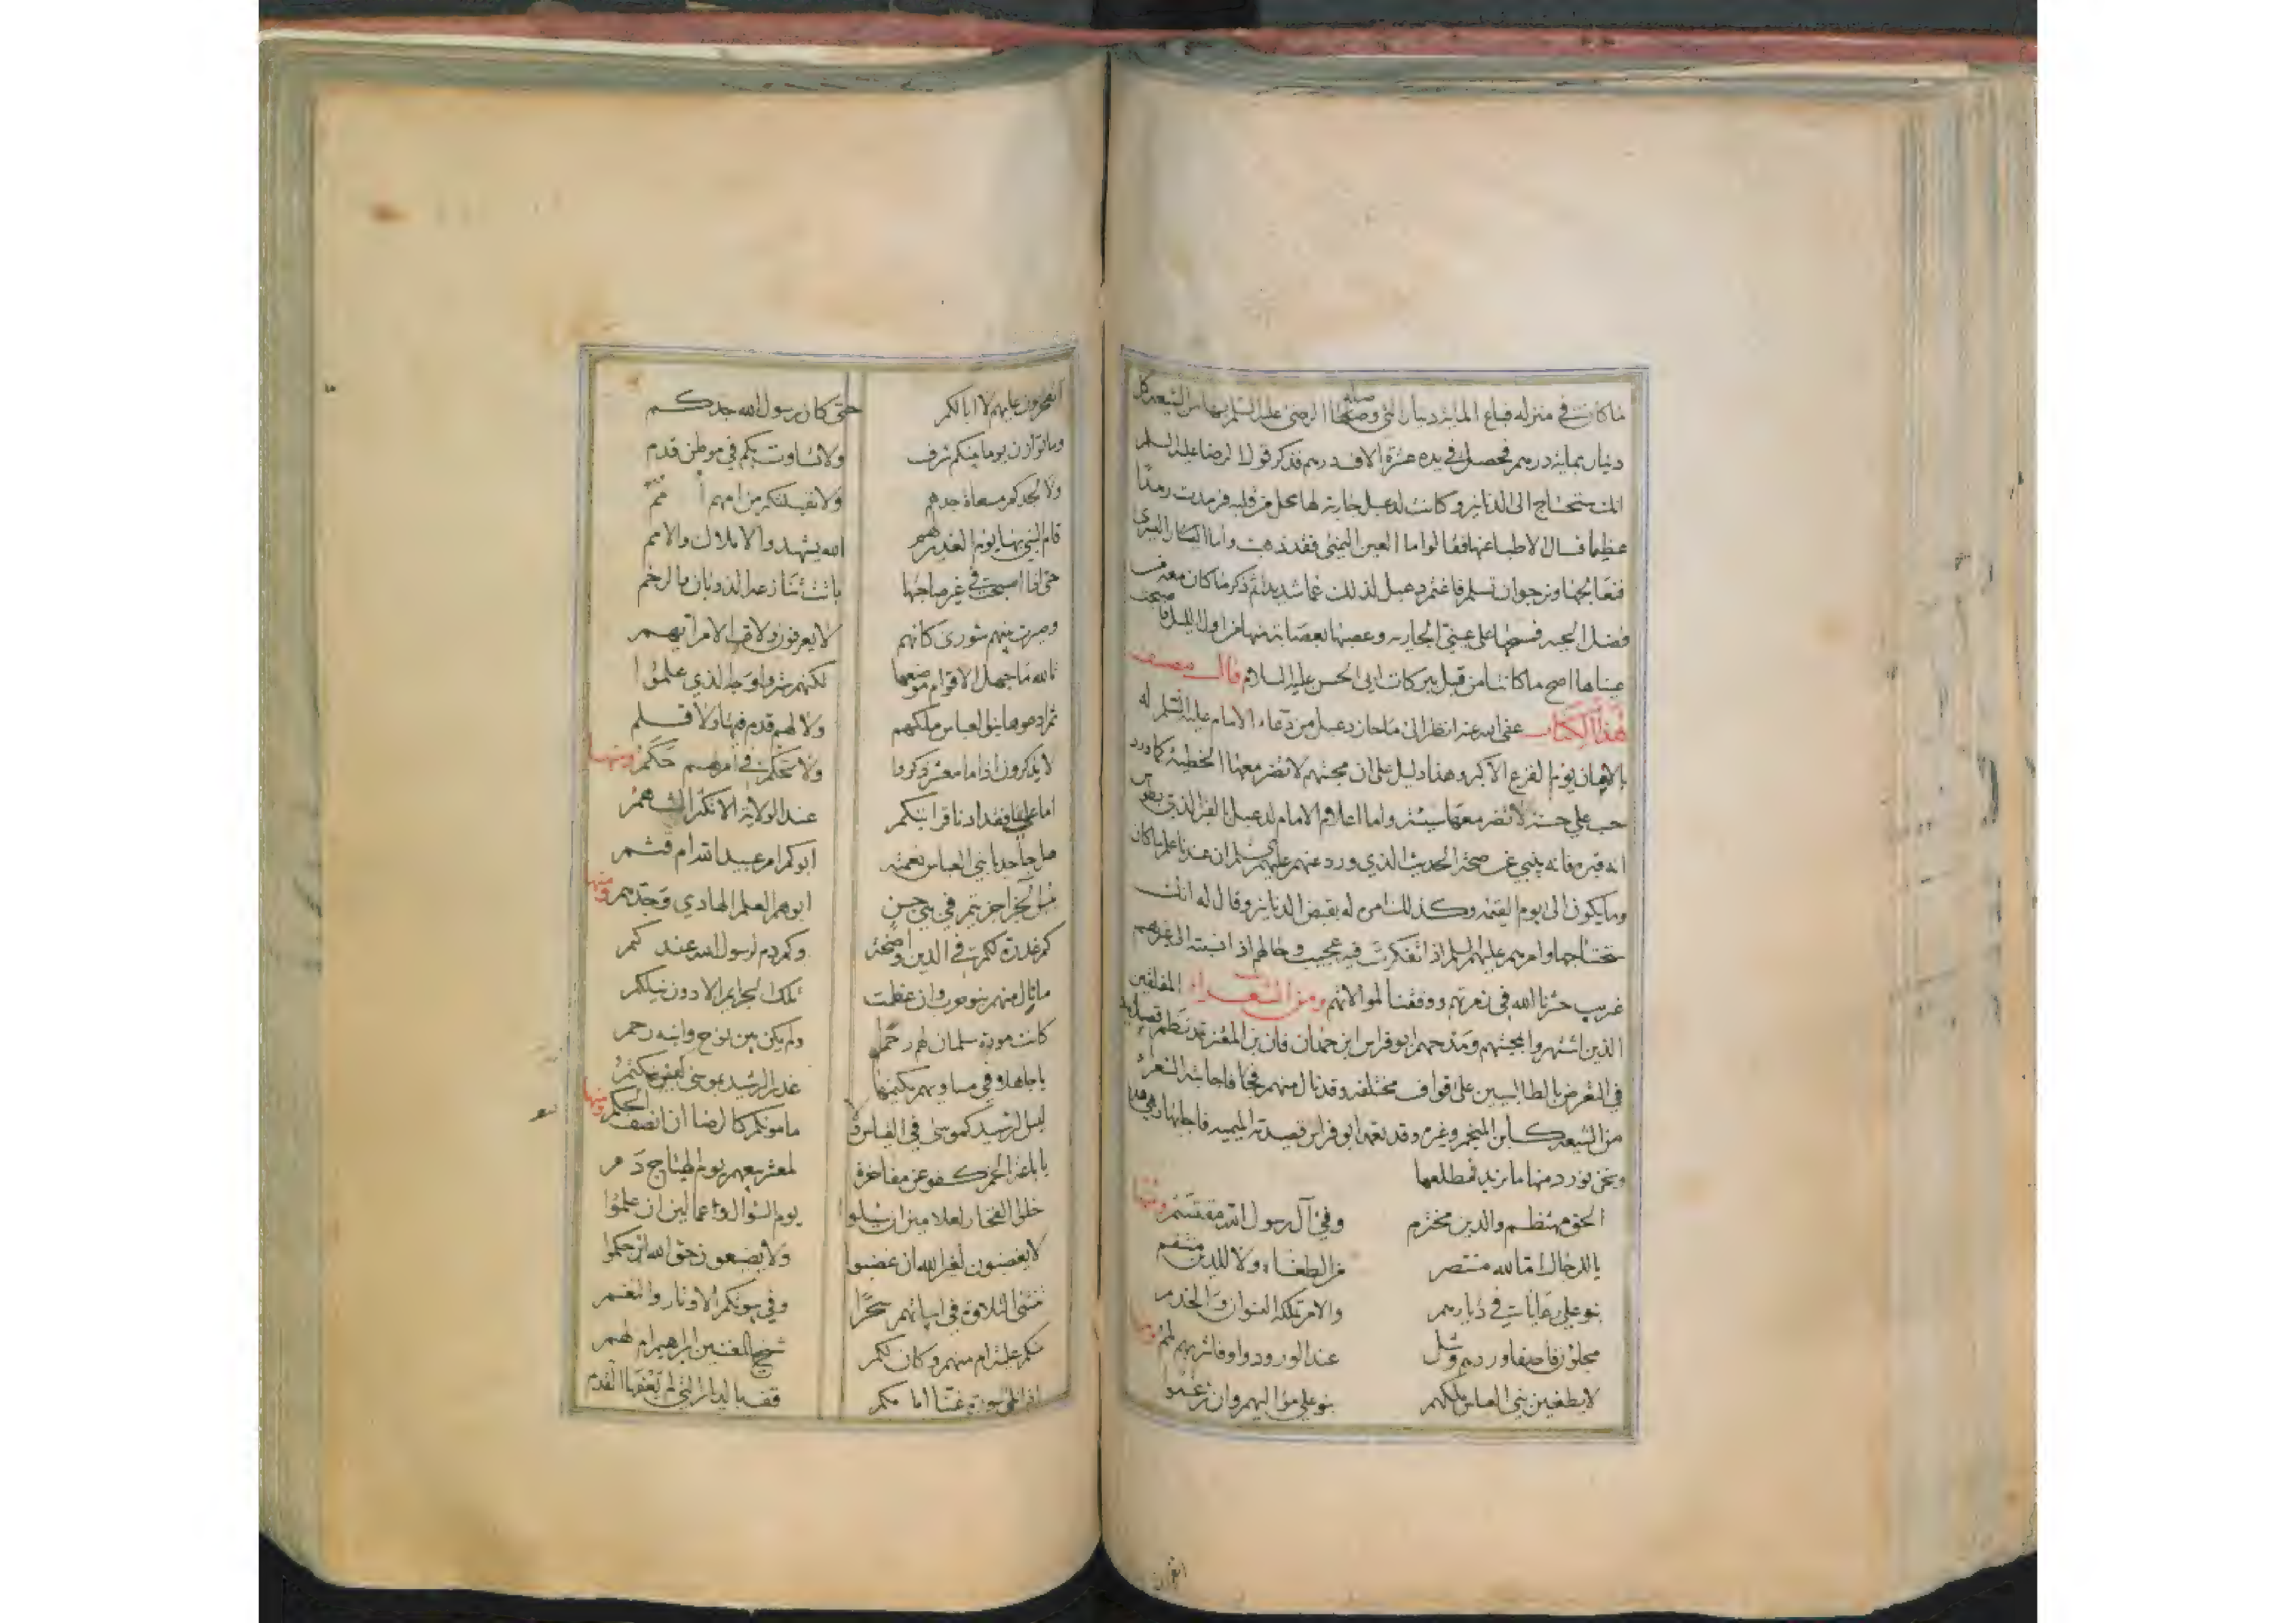 ما كانت في منزله فباع المایة دينار التي وصله بها الرضى عليه السلم بها من الشيعه كل
دينار بماية درهم فحصل في يده عشرة الاف درهم فذكر قول الرضا عليه السلم
انك ستحتاج الى الدنانير وكانت لدعبل جارية لها محل من قلبه فرمدت رمدا
عظيما فسال الاطباء عنها فقالوا اما العين اليمنى فقد ذهبت واما اليسرى
فنعالجها ونرجوا ان تسلم فاغتم دعبل لذلك غما شديدا ثم ذكر ما كان معه من
فضل الجبه فمسحها على عيني الجاريه وعصبها بعصابة منها من اول الليل فاصبحت
عيناها اصح ما كانتا من قبل ببركات ابي الحسن عليه السلام قال مصنف
هذا الكتاب عفى الله عنه انظر الى ما حاز دعبل من دعاء الامام عليه السلم له
بالامان يوم الفزع الاكبر وهذا دليل على ان محبتهم لا تضر معها الخطيئة كما ورد
حب علي حسنة لا تضر معها سيئة واما اعلام الامام لدعبل بالقبر الذي بطوس
انه قبره فانه ينبي عن صحة الحديث الذي ورد عنهم عليهم السلم ان عندنا علم ما كان
وما يكون الى يوم القيمة وكذلك امره له بقبض الدنانير وقال له انك
ستحتاجها وامرهم عليهم السلم اذا تفكرت فيه عجيب وحالهم اذا نسبته الى غيرهم
غريب حشرنا الله في زمرتهم ووفقنا لموالاتهم ومن الشعراء المفلقين
الذين اشتهروا بمحبتهم ومدحهم ابو فراس ابن حمدان فان ابن المعتز قد نظم قصايد
في التعرض بالطالبيين على قواف مختلفه وقد نال منهم فيها فاجابته الشعراء
من الشيعه كابن المنجم وغيره وقد نقم ابو فراس قصيدته الميميه فاجابها وهي هذه
ونحن نورد منها ما نريد فمطلعها
الحق مهتظم والدين مخترم وفي آل رسول الله مقتسم ومنها
يا للرجال اما لله منتصر من الطغاة ولا للدين منتقم
بنو علي رعايات في ديارهم والامر تملكه النسوان والخدم
محلؤن فاصفا وردهم وشل عند الورود واوفا شربهم لمم ومنها
لا يطغين بني العباس ملكهم بنو علي مواليهم وان زعموا
اتفخرون عليهم لا ابا لكم حتى كان رسول الله جدكم
وما توازن يوما بينكم شرف ولا تساوت بكم في موطن قدم
ولا لجدكم مسعاة جدهم ولا نفيلتكم من امهم امم
قام النبي بها يوم الغدير لهم الله يشهد والاملاك والامم
حتى اذا اصبحت في غير صاحبها باتت تنازعها الذوبان والرخم
وصيرت بينهم شورى كانهم لا يعرفون ولاة الامر ايهم
تالله ما جهل الاقوام موضعها لكنهم ستروا وجه الذي علموا
ثم ادعوها بنو العباس ملكهم ولا لهم قدم فيها ولا قدم
لا يذكرون اذا ما معشر ذكروا ولا يحكم في امرهم حكم ومنها
اما علي فقد ادنا قرابتكم عند الولاية الا تكفر النعم
هل جاحد يا بني العباس نعمته ابوكم ام عبيد الله ام قثم
بئس الجزا جزيتم في بني حسن ابوهم العلم الهادي وجدهم ومنها
كم غدرة لكم في الدين واضحة وكم دم لرسول الله عندكم
ما نال منهم بنو حرب وان عظمت تلك الجرايم الا دون نيلكم
كانت مودة سلمان لهم رحما ولم يكن بين نوح وابنه رحم
يا جاهدا في مساويهم يكتمها غدر الرشيد بيحيى كيف يكتتم
ليس الرشيد كموسى في القياس ولا مامونكم كالرضا ان انصف الحكم ومنها
يا باعة الخمر كفو عن مفاخرة لمعشر بيعهم يوم الهياج دم
خلوا الفخار لعلامين ان سئلوا يوم السؤال وعمالين ان علموا
لا يغضبون لغير الله ان غضبوا ولا يضيعون حق الله ان حكموا
تنشى التلاوة في ابياتهم سحرا وفي بيوتكم الاوتار والنغم
منكم علية ام منهم وكان لكم شيخ المغنين ابراهيم ام لهم
اذا تلى سورة غنا امامكم قف بالديار التي لم يعفها القدم